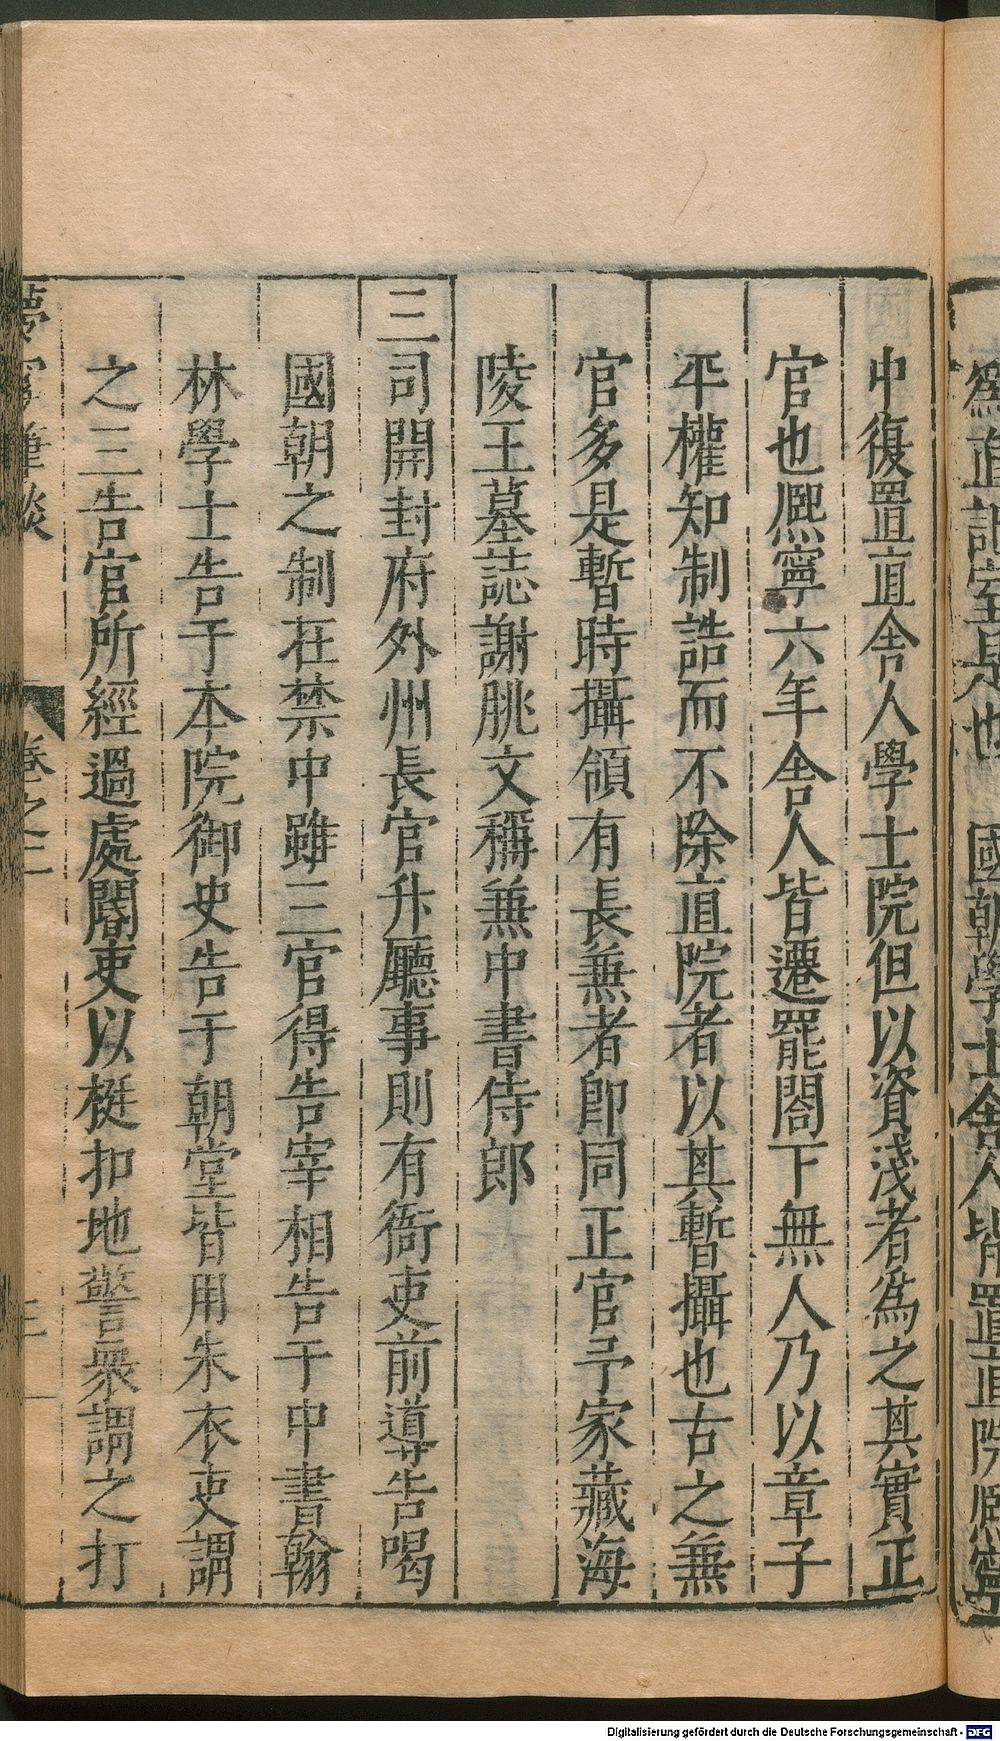 爲直詔室是也　國朝學士舍人皆置直院熈寧
中復置直舍人學士院但以資淺者爲之其實正
官也熈寧六年舍人皆遷罷閤下無人乃以章子
平權知制誥而不除直院者以其暫攝也古之兼
官多是暫時攝領有長兼者即同正官予家藏海
陵王墓誌謝朓文稱兼中書侍郎
三司開封府外州長官升廳事則有衙吏前導告喝
國朝之制在禁中雖三官得告宰相告于中書翰
林學士告于本院御史告于朝堂皆用朱衣吏謂
之三告官所經過處閽吏以梃扣地警衆謂之打
夢溪筆談　卷之二
Digitalisierung gefördert durch die Deutsche Forschungsgemeinschaft - DFG